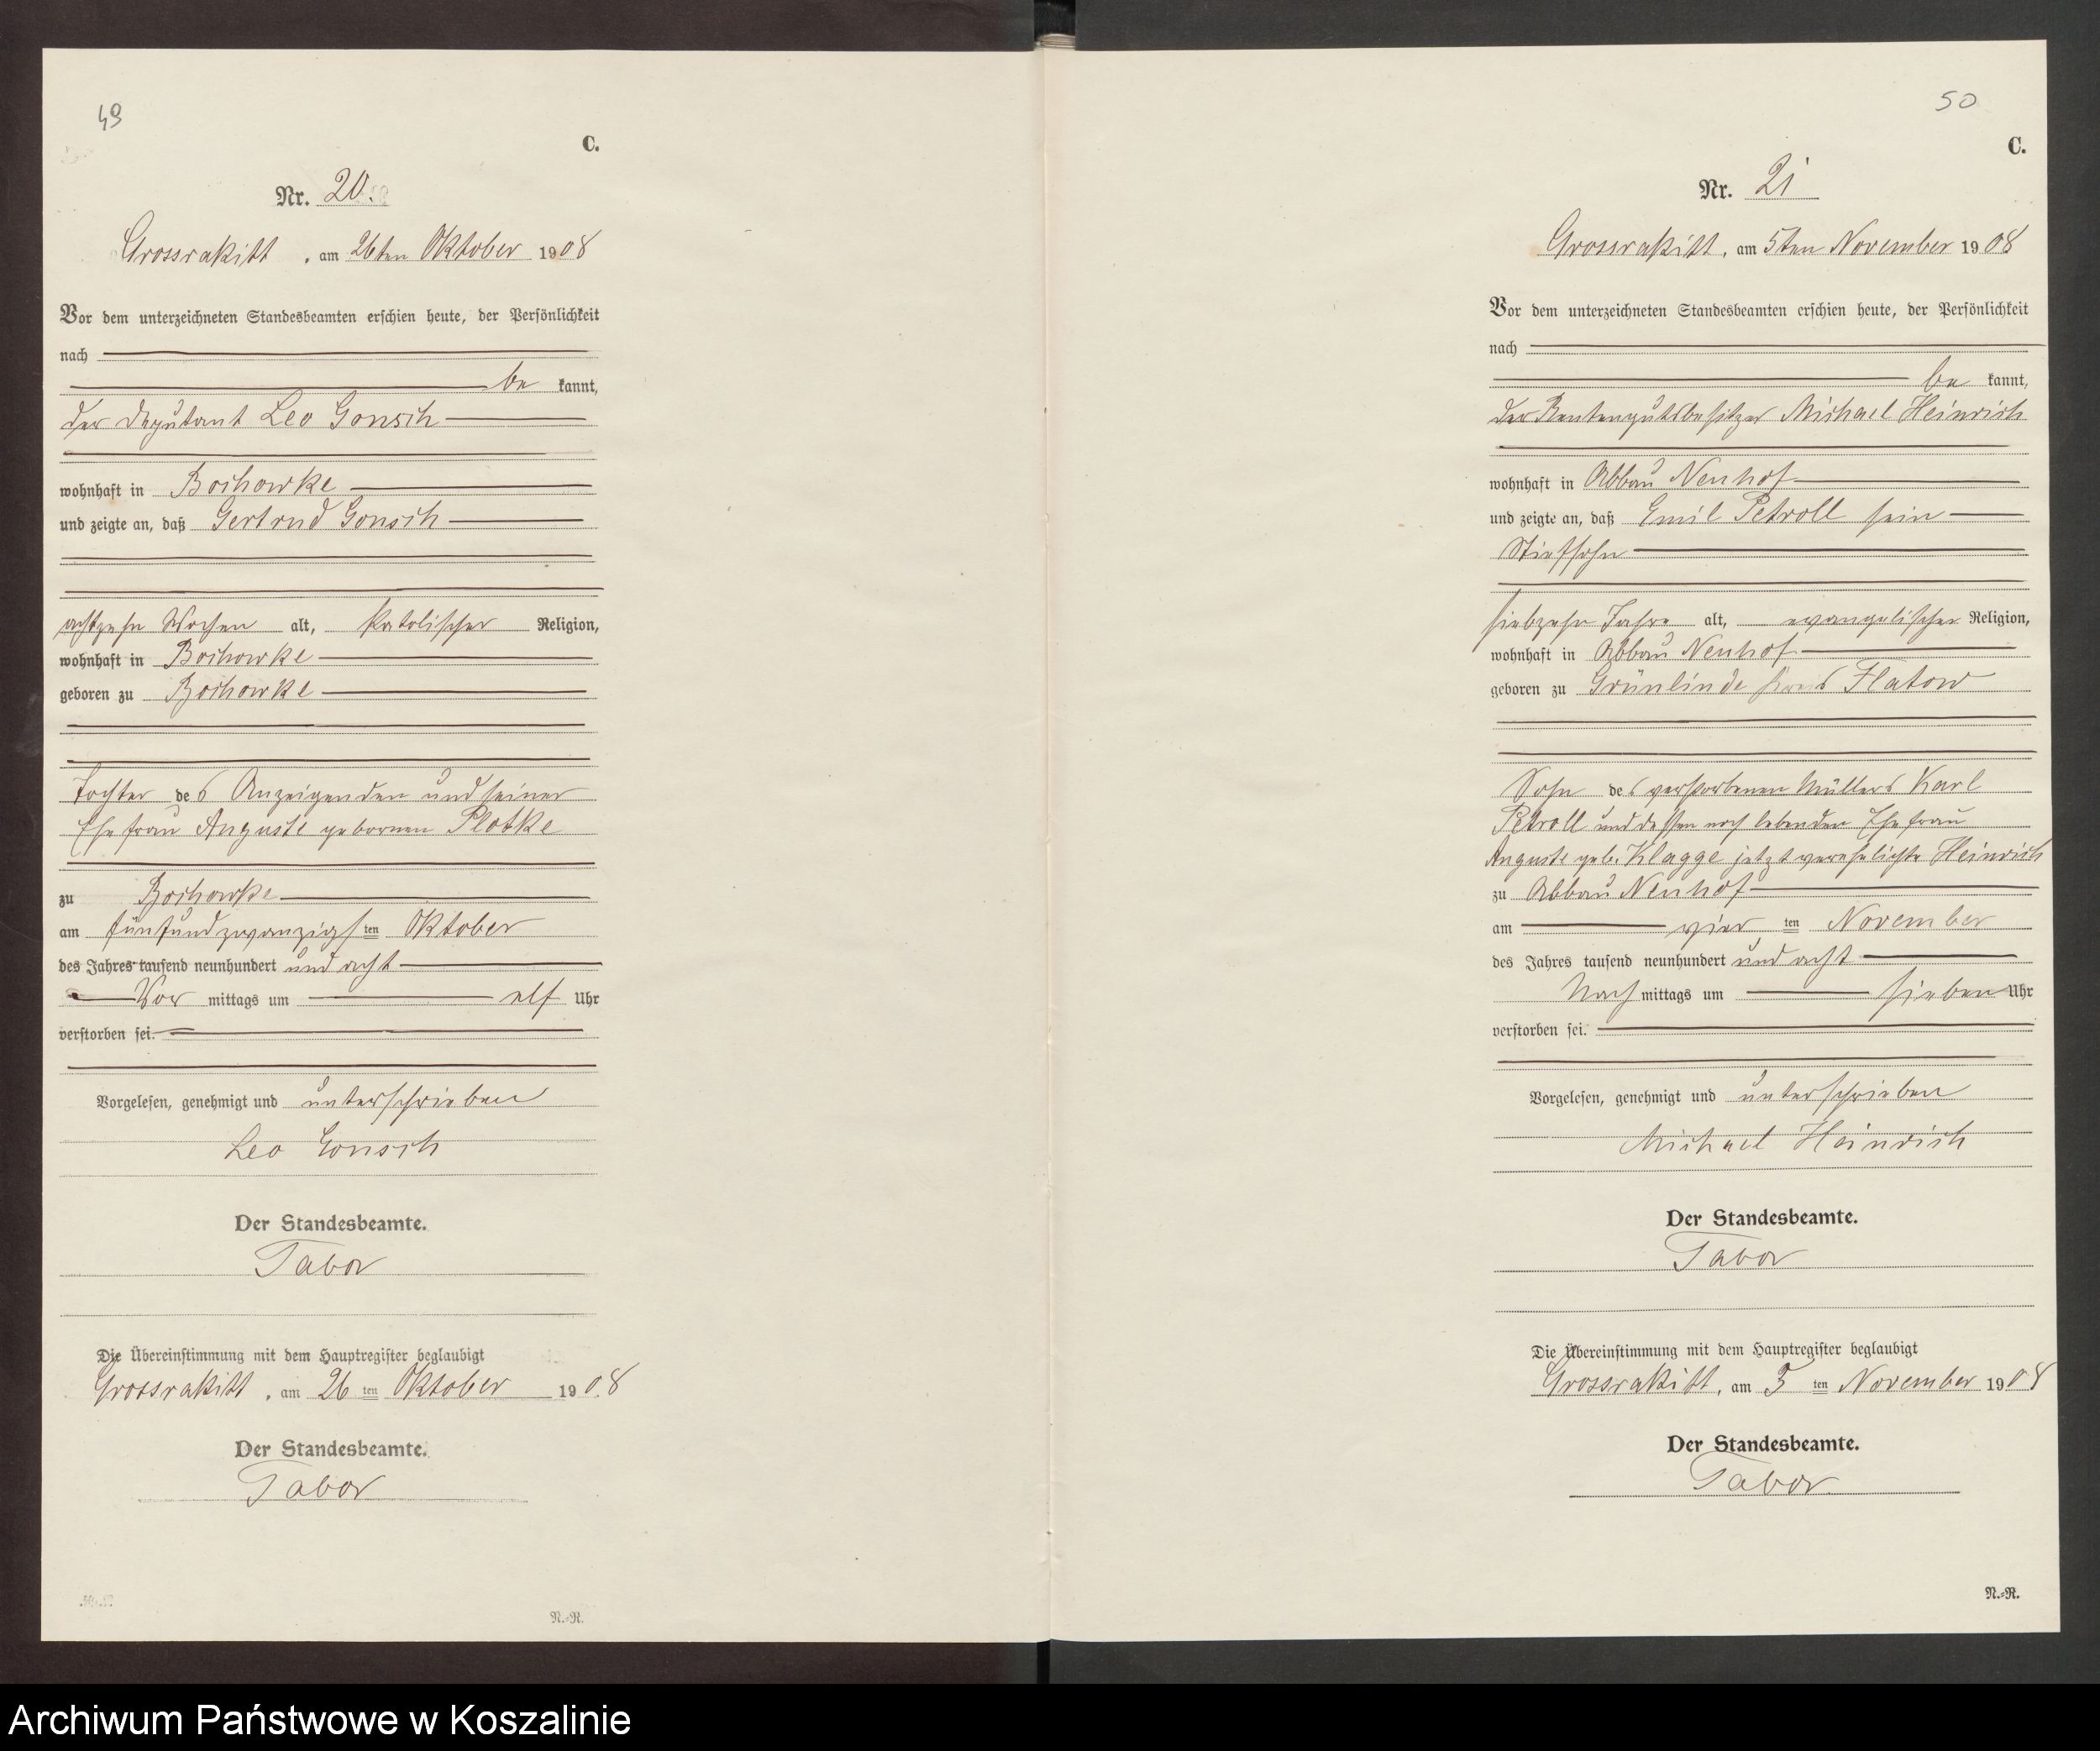 49
C.
Nr. 20.
Grossrakitt, am 26ten Oktober 1908
Vor dem unterzeichneten Standesbeamten erschien heute, der Persönlichkeit
nach
be kannt,
der Deputant Leo Gonsch
wohnhaft in Bochowke
und zeigte an, daß Gertrud Gonsch
achtzehn Wochen alt, katolischer Religion,
wohnhaft in Bochowke
geboren zu Bochowke
Tochter des Anzeigenden und seiner
Ehefrau Auguste gebornen Plotke
zu Bochowke
am fünfundzwanzigsten Oktober
des Jahres tausend neunhundert und acht
Vor mittags um elf Uhr
verstorben sei.
Vorgelesen, genehmigt und unterschrieben
Leo Gonsch
Der Standesbeamte.
Tabor
Die Übereinstimmung mit dem Hauptregister beglaubigt
Grossrakitt, am 26 ten Oktober 1908
Der Standesbeamte.
Tabor
N.-R.
50
C.
Nr. 21
Grossrakitt, am 5ten November 1908
Vor dem unterzeichneten Standesbeamten erschien heute, der Persönlichkeit
nach
be kannt,
der Rentengutsbesitzer Michael Heinrich
wohnhaft in Abbau Neuhof
und zeigte an, daß Emil Petroll sein
Stiefsohn
siebzehn Jahre alt, evangelischer Religion,
wohnhaft in Abbau Neuhof
geboren zu Grünlinde Kreis Flatow
Sohn des verstorbenen Müllers Karl
Petroll und dessen noch lebenden Ehefrau
Auguste geb. Klagge jetzt verehelichte Heinrich
zu Abbau Neuhof
am vier ten November
des Jahres tausend neunhundert und acht
Nach mittags um sieben Uhr
verstorben sei.
Vorgelesen, genehmigt und unterschrieben
Michael Heinrich
Der Standesbeamte.
Tabor
Die Übereinstimmung mit dem Hauptregister beglaubigt
Grossrakitt, am 5 ten November 1908
Der Standesbeamte.
Tabor
N.-R.
Archiwum Państwowe w Koszalinie